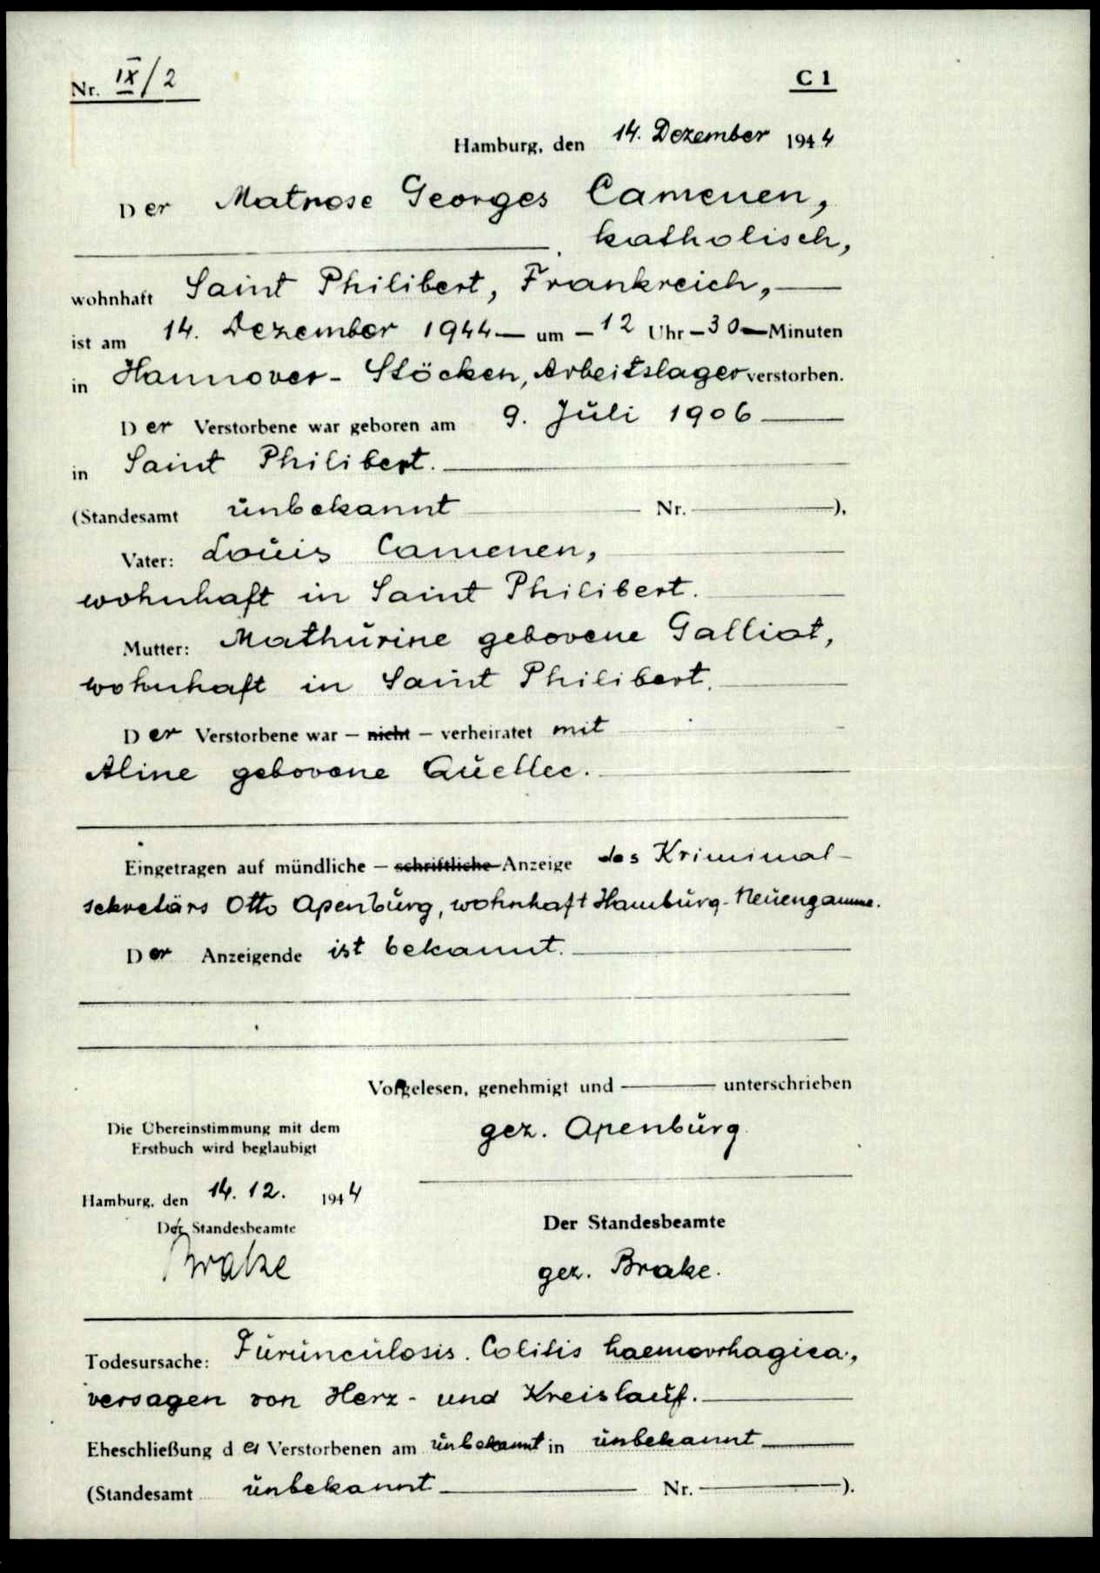 Nr. IX/2
C 1
Hamburg, den 14. Dezember 1944
Der Matrose Georges Camenen,
katholisch,
wohnhaft Saint Philibert, Frankreich,
ist am 14. Dezember 1944 — um — 12 Uhr — 30 — Minuten
in Hannover - Stöcken, Arbeitslager verstorben.
Der Verstorbene war geboren am 9. Juli 1906
in Saint Philibert.
(Standesamt unbekannt Nr. ).
Vater: Louis Camenen,
wohnhaft in Saint Philibert.
Mutter: Mathurine geborene Galliot,
wohnhaft in Saint Philibert.
Der Verstorbene war — nicht — verheiratet mit
Aline geborene Quellec.
Eingetragen auf mündliche — schriftliche Anzeige des Kriminal-
sekretärs Otto Apenburg, wohnhaft Hamburg-Neuengamme.
Der Anzeigende ist bekannt.
Vorgelesen, genehmigt und unterschrieben
gez. Apenburg
Die Übereinstimmung mit dem
Erstbuch wird beglaubigt
Hamburg, den 14. 12. 1944
Der Standesbeamte
Brake
Der Standesbeamte
gez. Brake.
Todesursache: Furunculosis. Colitis haemorrhagica,
versagen von Herz- und Kreislauf.
Eheschließung des Verstorbenen am unbekannt in unbekannt
(Standesamt unbekannt Nr. ).